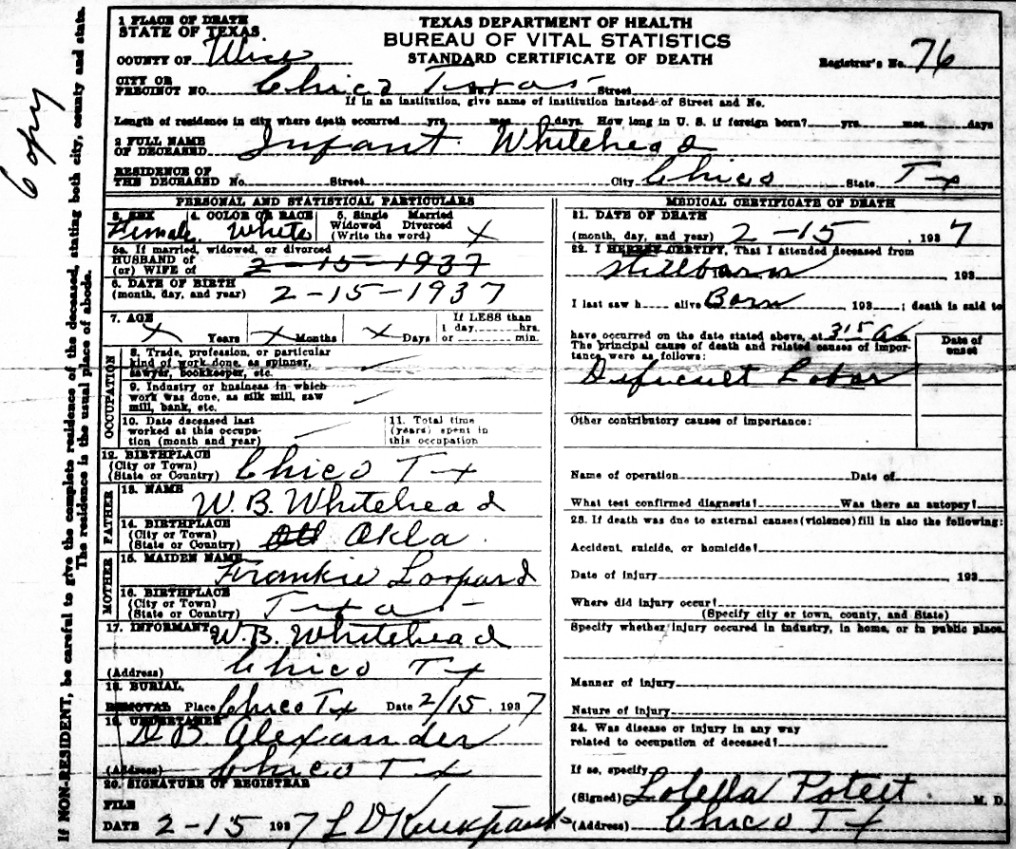 Copy
If NON-RESIDENT, be careful to give the complete residence of the deceased, stating both city, county and state.
The residence is the usual place of abode.
TEXAS DEPARTMENT OF HEALTH
BUREAU OF VITAL STATISTICS
STANDARD CERTIFICATE OF DEATH
1 PLACE OF DEATH
STATE OF TEXAS
COUNTY OF Wise
Registrar's No. 76
CITY OR PRECINCT NO. Chico Texas Street
If in an institution, give name of institution instead of Street and No.
Length of residence in city where death occurred yrs. mos. days. How long in U. S. if foreign born? yrs. mos. days
2 FULL NAME OF DECEASED Infant Whitehead
RESIDENCE OF THE DECEASED No. Street City Chico State Tx
PERSONAL AND STATISTICAL PARTICULARS
3. SEX Female 4. COLOR OR RACE White 5. Single Married Widowed Divorced (Write the word) x
5a. If married, widowed, or divorced
HUSBAND of
(or) WIFE of 2-15-1937
6. DATE OF BIRTH
(month, day, and year) 2-15-1937
7. AGE x Years x Months x Days If LESS than 1 day, hrs. or min.
OCCUPATION
8. Trade, profession, or particular
kind of work done, as spinner,
sawyer, bookkeeper, etc.
9. Industry or business in which
work was done, as silk mill, saw
mill, bank, etc.
10. Date deceased last
worked at this occupa-
tion (month and year)
11. Total time
(years) spent in
this occupation
12. BIRTHPLACE
(City or Town)
(State or Country) Chico Tx
FATHER
13. NAME W. B. Whitehead
14. BIRTHPLACE
(City or Town)
(State or Country) Okla
MOTHER
15. MAIDEN NAME Frankie
16. BIRTHPLACE
(City or Town)
(State or Country) Texas
17. INFORMANT W. B. Whitehead
(Address) Chico Tx
18. BURIAL,
REMOVAL Place Chico Tx Date 2/15, 1937
19. UNDERTAKER
D. B. Alexander
(Address) Chico Tx
20. SIGNATURE OF REGISTRAR
FILE
DATE 2-15 1937 L D
MEDICAL CERTIFICATE OF DEATH
21. DATE OF DEATH
(month, day, and year) 2-15, 1937
22. I HEREBY CERTIFY, That I attended deceased from
Stillborn, 193
I last saw h alive Born, 193; death is said to
have occurred on the date stated above, at 315 am
The principal cause of death and related causes of impor-
tance were as follows:
Date of
onset
Dificult Labor
Other contributory causes of importance:
Name of operation Date of
What test confirmed diagnosis? Was there an autopsy?
23. If death was due to external causes (violence) fill in also the following:
Accident, suicide, or homicide?
Date of injury 193
Where did injury occur?
(Specify city or town, county, and State)
Specify whether injury occured in industry, in home, or in public place.
Manner of injury
Nature of injury
24. Was disease or injury in any way
related to occupation of deceased?
If so, specify
(Signed) Lolella Poteet M. D.
(Address) Chico Tx